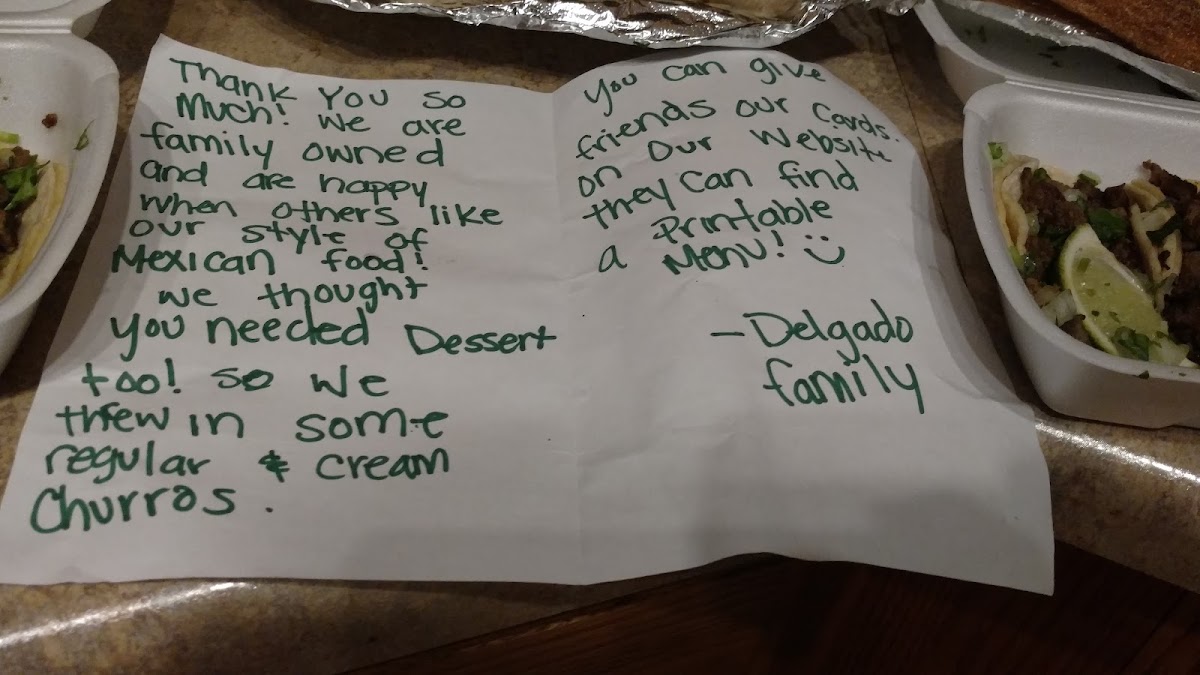 Thank You so
Much! We are
family owned
and are happy
when others like
our style of
Mexican food!
We thought
you needed Dessert
too! so we
threw in some
regular & cream
Churros.
You can give
friends our Cards.
on our website
they can find
a Printable
Menu! :)
- Delgado
family